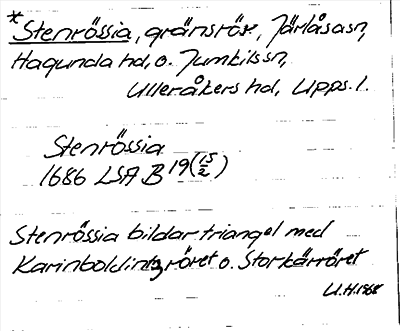 *Stenrössia, gränsrös, Järlåsa sn,
Hagunda hd, o. Jumkils sn,
Ulleråkers hd, Upps. l.
Stenrössia
1686 LSA B 19 (15/2)
Stenrössia bildar triangel med
Karinboldingröret o. Storkärröret
U.H. 1968